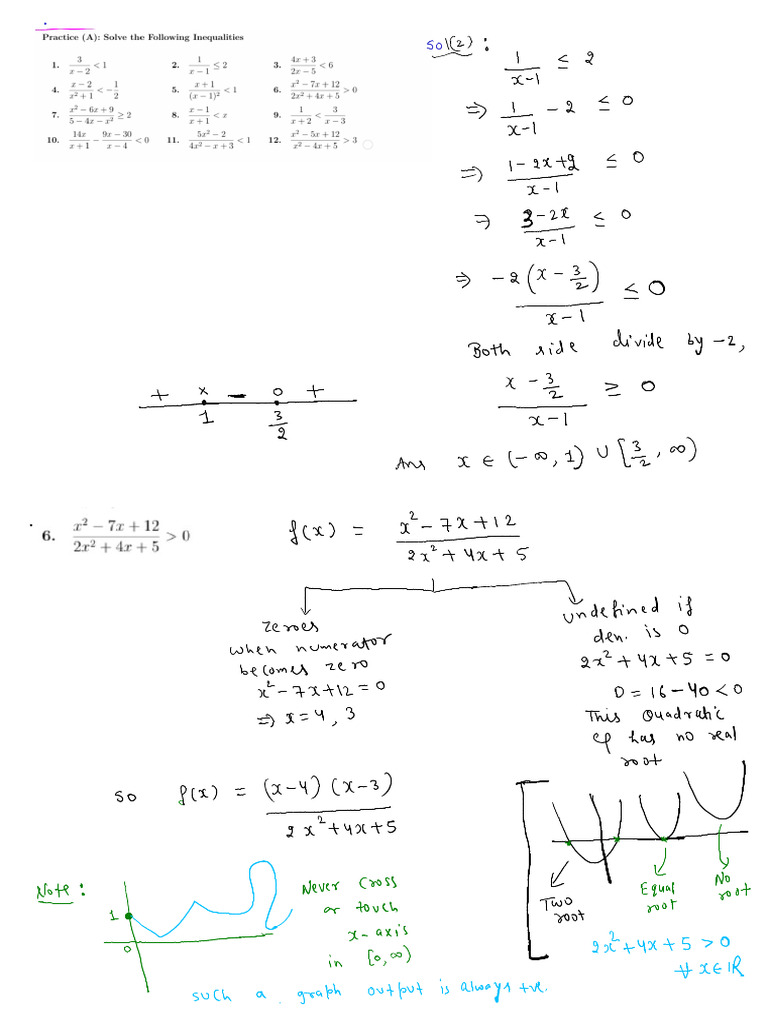 Practice (A): Solve the Following Inequalities
1. 3/(x − 2) < 1 2. 1/(x − 1) ≤ 2 3. (4x + 3)/(2x − 5) < 6
4. (x − 2)/(x² + 1) < −1/2 5. (x + 1)/(x − 1)² < 1 6. (x² − 7x + 12)/(2x² + 4x + 5) > 0
7. (x² − 6x + 9)/(5 − 4x − x²) ≥ 2 8. (x − 1)/(x + 1) < x 9. 1/(x + 2) < 3/(x − 3)
10. 14x/(x + 1) − (9x − 30)/(x − 4) < 0 11. (5x² − 2)/(4x² − x + 3) < 1 12. (x² − 5x + 12)/(x² − 4x + 5) > 3
Sol(2) :
1/(x-1) ≤ 2
⇒ 1/(x-1) - 2 ≤ 0
⇒ (1-2x+2)/(x-1) ≤ 0
⇒ (3-2x)/(x-1) ≤ 0
⇒ -2(x - 3/2)/(x-1) ≤ 0
Both side divide by -2,
(x - 3/2)/(x-1) ≥ 0
+ x - 0 +
1 3/2
Ans x ∈ (-∞, 1) ∪ [3/2, ∞)
6. (x² − 7x + 12)/(2x² + 4x + 5) > 0
f(x) = (x² - 7x + 12)/(2x² + 4x + 5)
zeroes
when numerator
becomes zero
x² - 7x + 12 = 0
⇒ x = 4, 3
undefined if
den. is 0
2x² + 4x + 5 = 0
D = 16 - 40 < 0
This Quadratic
has no real
root
so f(x) = (x-4)(x-3)/(2x² + 4x + 5)
Two
root
Equal
root
No
root
2x² + 4x + 5 > 0
∀ x ∈ IR
Note :
1
0
Never cross
or touch
x-axis
in [0, ∞)
such a graph output is always +ve.